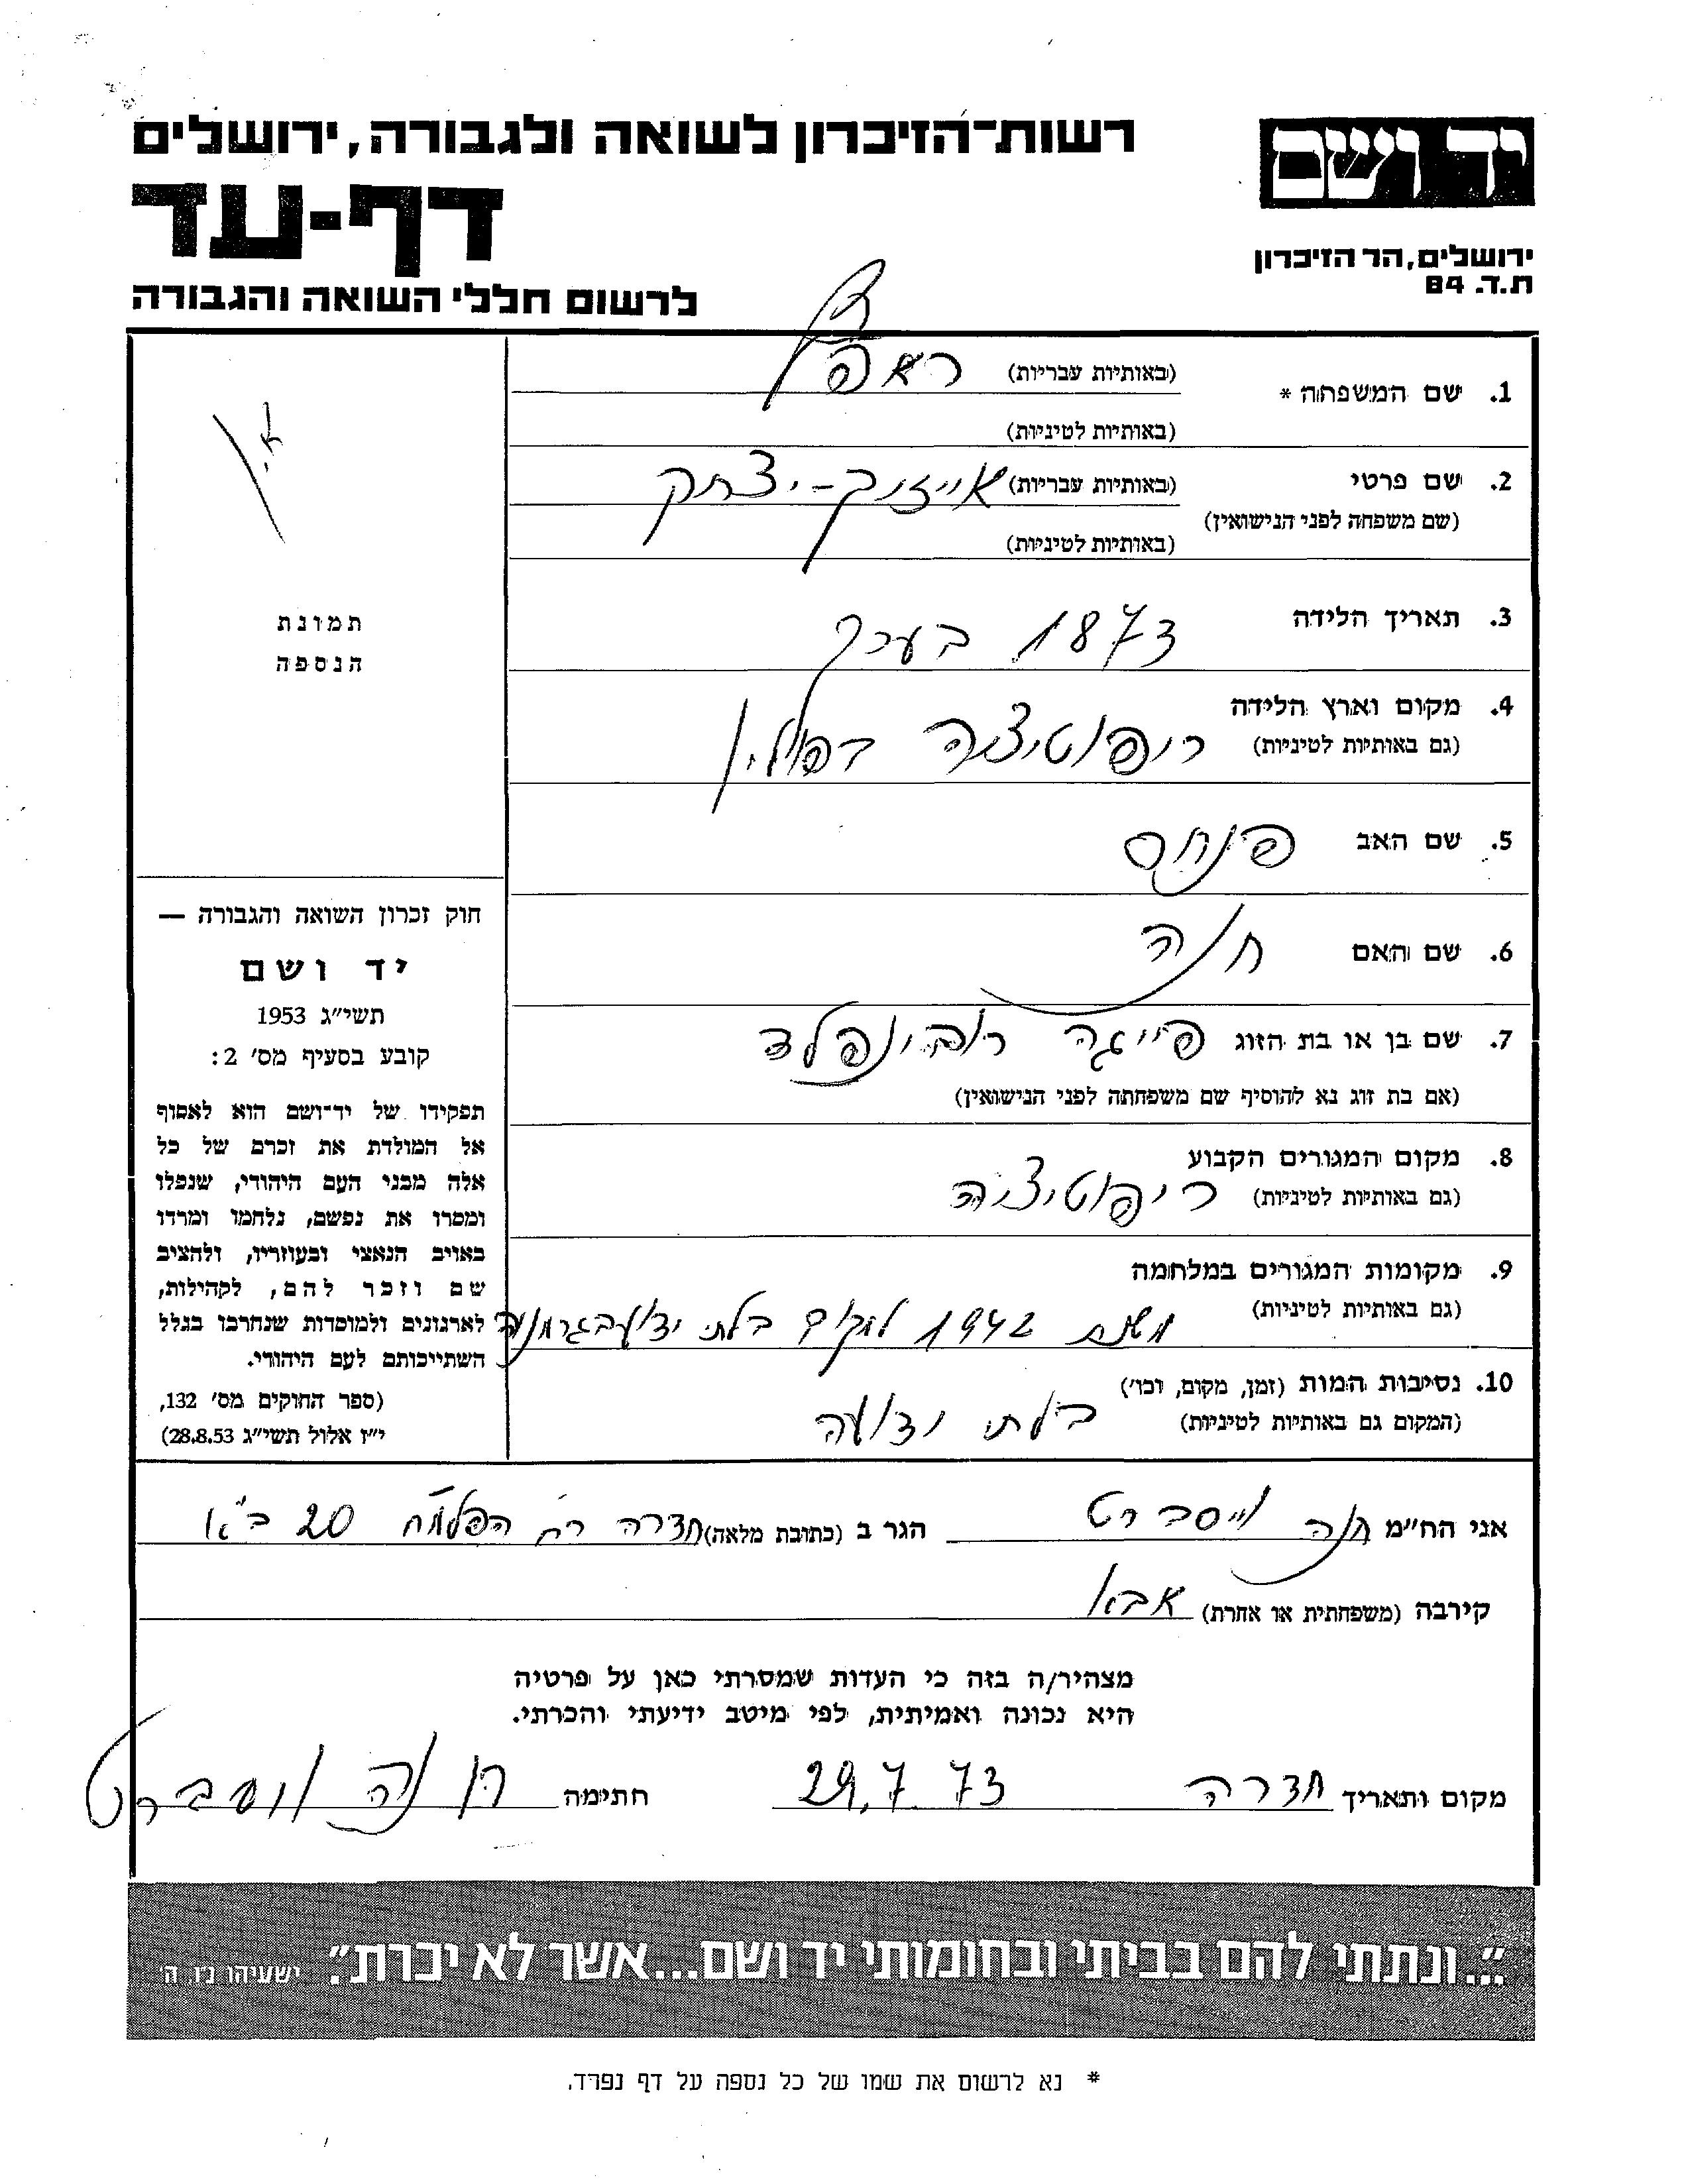 רשות-הזיכרון לשואה ולגבורה, ירושלים
יד ושם
דף-עד
ירושלים, הר הזיכרון
ת.ד. 84
לרשום חללי השואה והגבורה
1. שם המשפחה * (באותיות עבריות)
(באותיות לטיניות)
2. שם פרטי (באותיות עבריות) אייזיק-יצחק
(שם משפחה לפני הנישואין)
(באותיות לטיניות)
3. תאריך הלידה 1873 בערך
4. מקום וארץ הלידה
(גם באותיות לטיניות) ריפוטיצה בפולין
5. שם האב פנחס
6. שם האם חנה
7. שם בן או בת הזוג פייגה רובינפלד
(אם בת זוג נא להוסיף שם משפחתה לפני הנישואין)
8. מקום המגורים הקבוע
(גם באותיות לטיניות) ריפוטיצה
9. מקומות המגורים במלחמה
(גם באותיות לטיניות) משנת 1942 למקום בלתי ידוע בגרמניה
10. נסיבות המות (זמן, מקום, וכו')
(המקום גם באותיות לטיניות) בלתי ידועה
תמונת
הנספה
חוק זכרון השואה והגבורה —
יד ושם
תשי"ג 1953
קובע בסעיף מס' 2:
תפקידו של יד-ושם הוא לאסוף
אל המולדת את זכרם של כל
אלה מבני העם היהודי, שנפלו
ומסרו את נפשם, נלחמו ומרדו
באויב הנאצי ובעוזריו, ולהציב
שם וזכר להם, לקהילות,
לארגונים ולמוסדות שנחרבו בגלל
השתייכותם לעם היהודי.
(ספר החוקים מס' 132,
י"ז אלול תשי"ג 28.8.53)
אני הח"מ חנה וייסברט הגר ב (כתובת מלאה) חדרה רח הפלמ"ח 20 ב"א
קירבה (משפחתית או אחרת) אבא
מצהיר/ה בזה כי העדות שמסרתי כאן על פרטיה
היא נכונה ואמיתית, לפי מיטב ידיעתי והכרתי.
מקום ותאריך חדרה 29.7.73 חתימה חנה ויסברט
"...ונתתי להם בביתי ובחומותי יד ושם...אשר לא יכרת". ישעיהו נ"ו, ה'
* נא לרשום את שמו של כל נספה על דף נפרד.